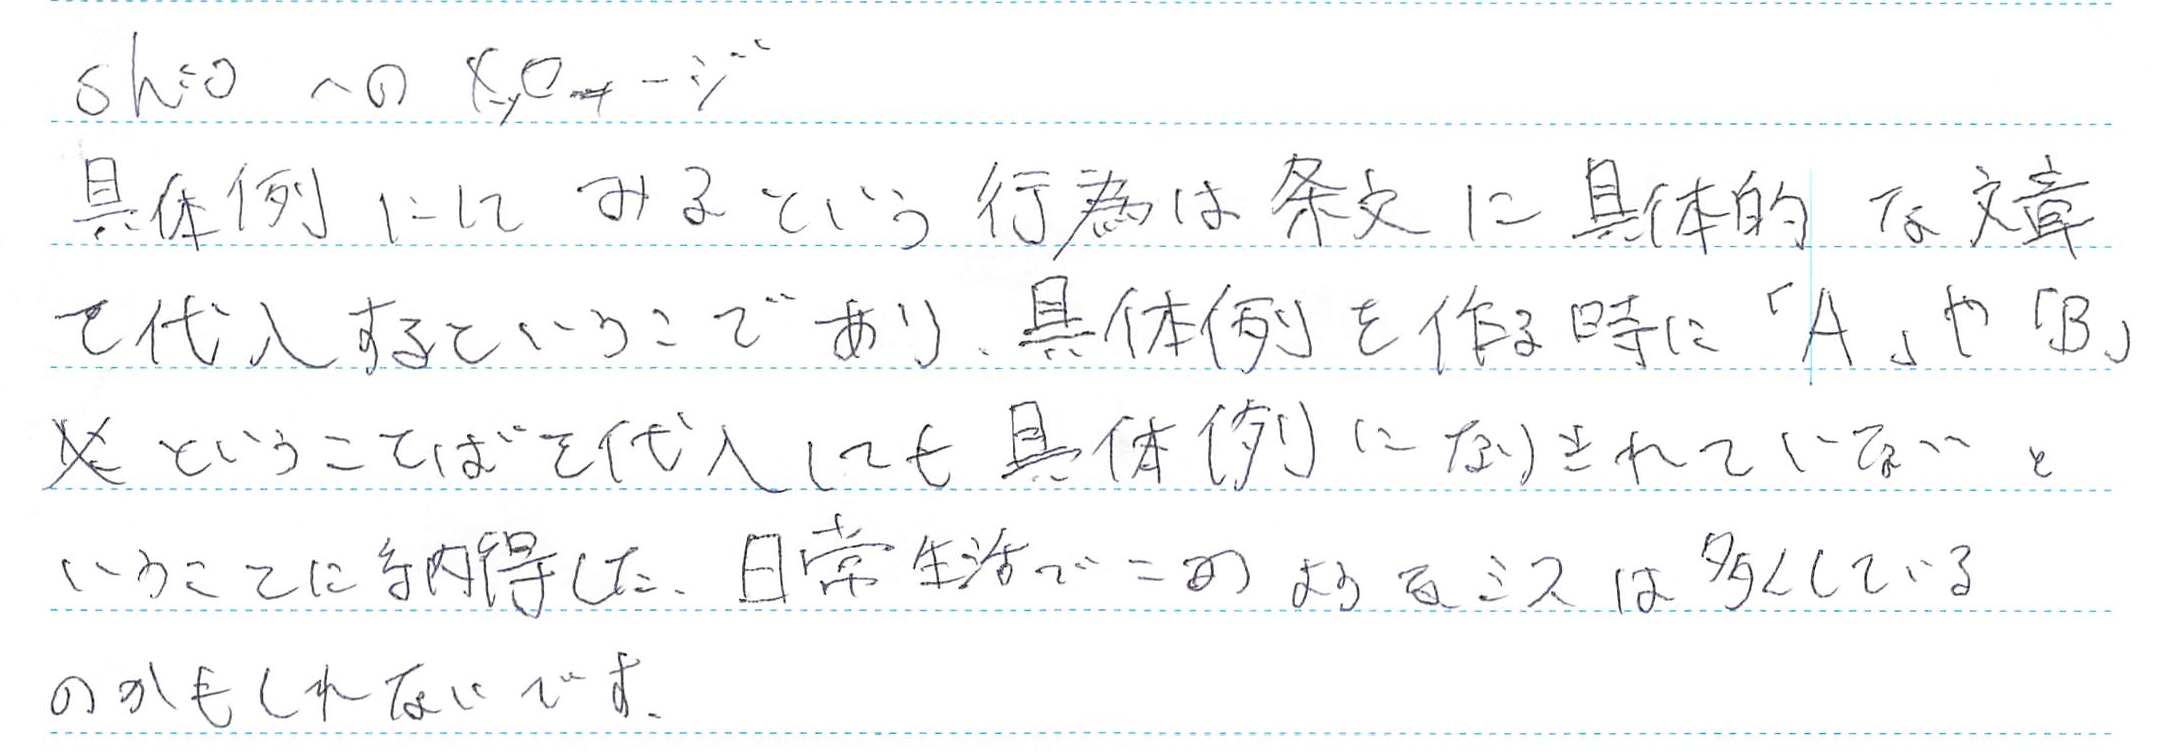 shioへのメッセージ
具体例にしてみるという行為は条文に具体的な文章
で代入するということであり、具体例を作る時に「A」や「B」
ということばを代入しても具体例になりきれていないと
いうことに納得した。日常生活でこのようなミスは多くしている
のかもしれないです。